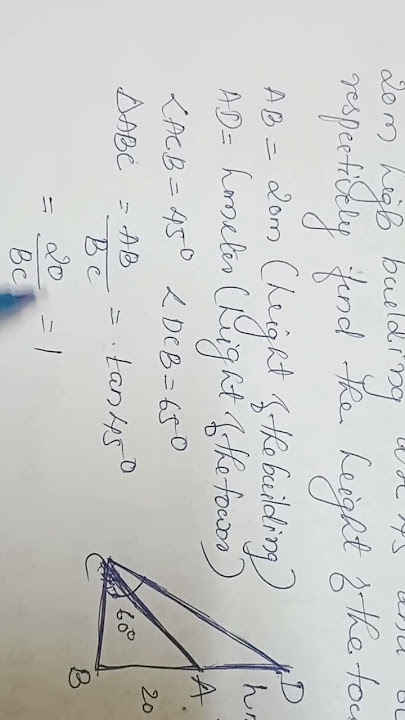 20m high building are 45 and
respectively find the height of the
AB = 20m (height of the building)
AD = hmeter (height of the tower)
∠ACB = 45° ∠DCB = 65°
△ABC = AB/BC = tan 45°
= 20/BC = 1
D
h
A
20
B
C
60°